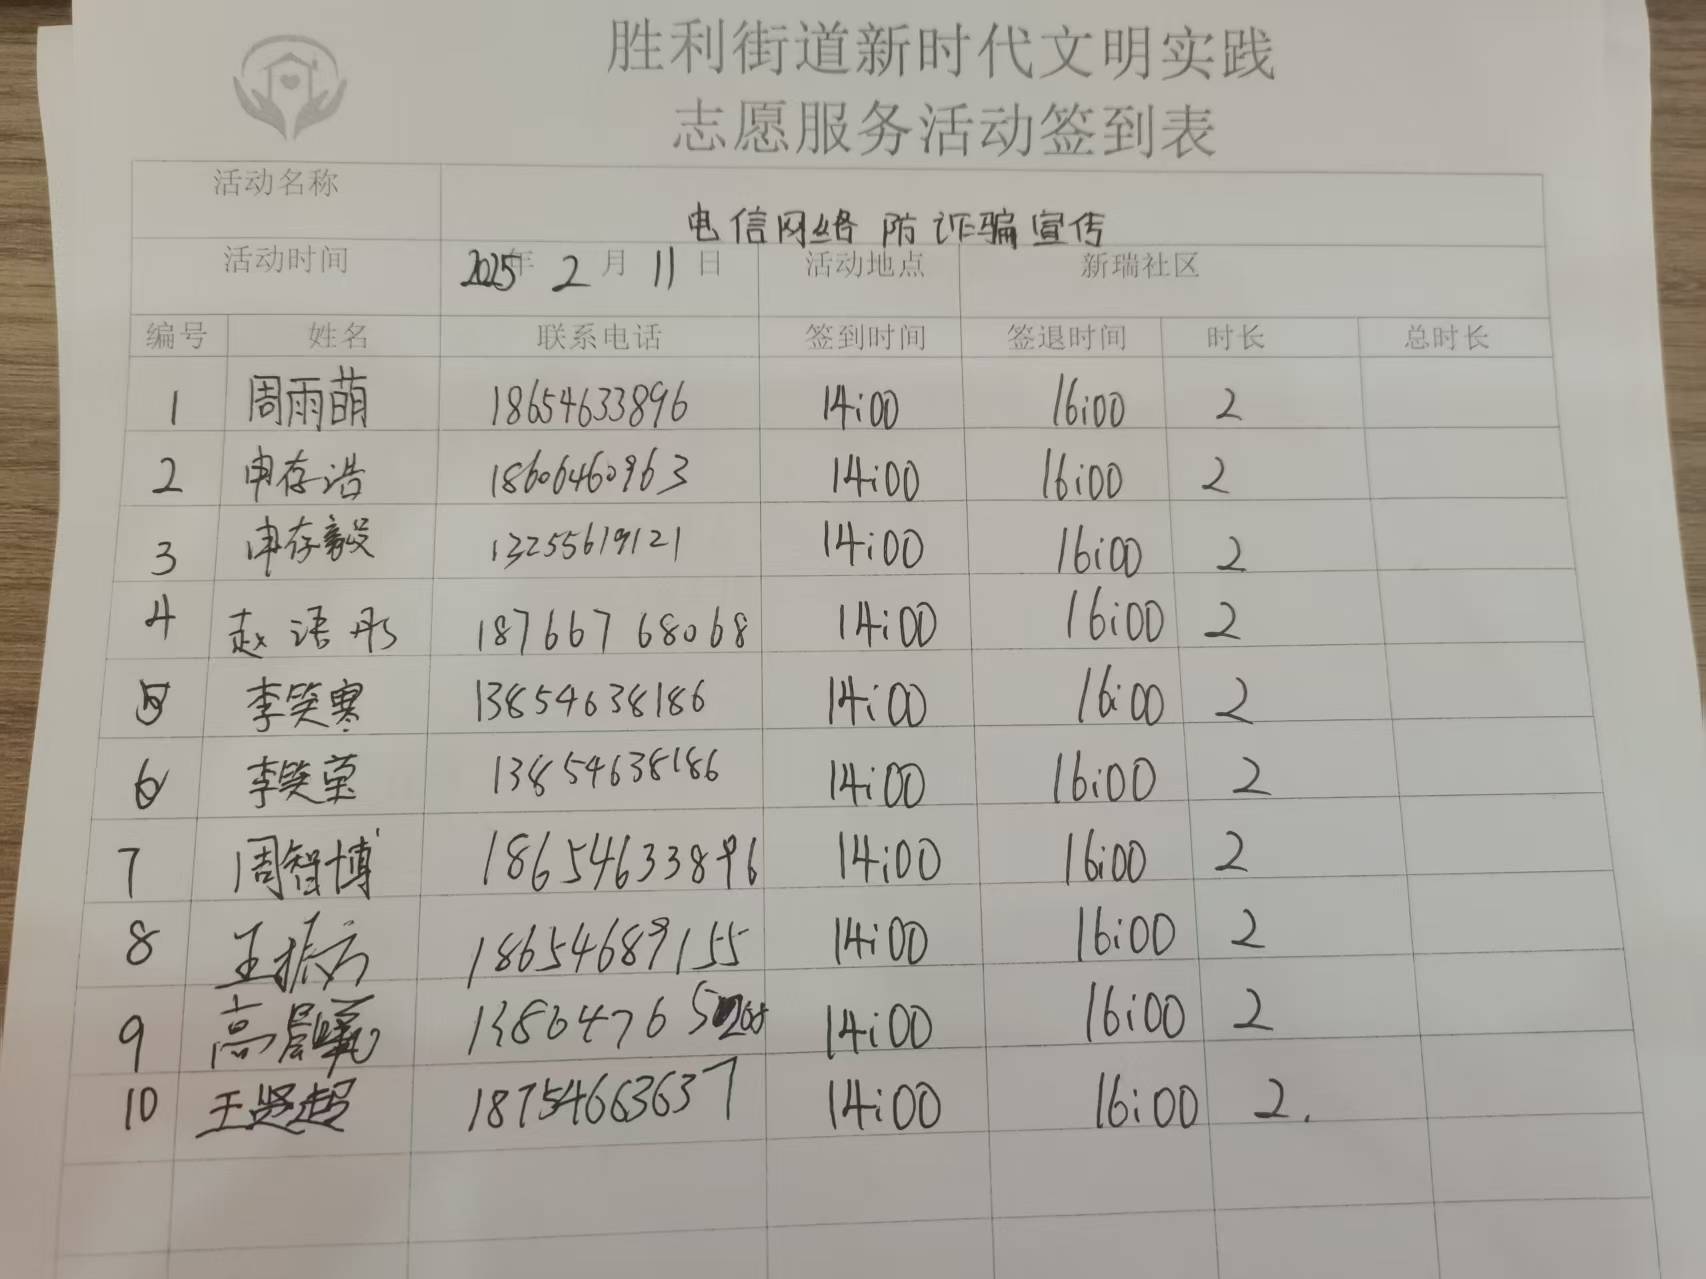 胜利街道新时代文明实践
志愿服务活动签到表
活动名称 电信网络 防诈骗宣传
活动时间 2025年 2 月 11 日 活动地点 新瑞社区
编号 姓名 联系电话 签到时间 签退时间 时长 总时长
1 周雨萌 18654633896 14:00 16:00 2
2 申存浩 18606460963 14:00 16:00 2
3 申存毅 13255619121 14:00 16:00 2
4 赵语彤 18766768068 14:00 16:00 2
5 李笑寒 13854638186 14:00 16:00 2
6 李笑莹 13854638186 14:00 16:00 2
7 周智博 18654633896 14:00 16:00 2
8 王振方 18654689155 14:00 16:00 2
9 高晨曦 14:00 16:00 2
10 王贤超 18754663637 14:00 16:00 2.